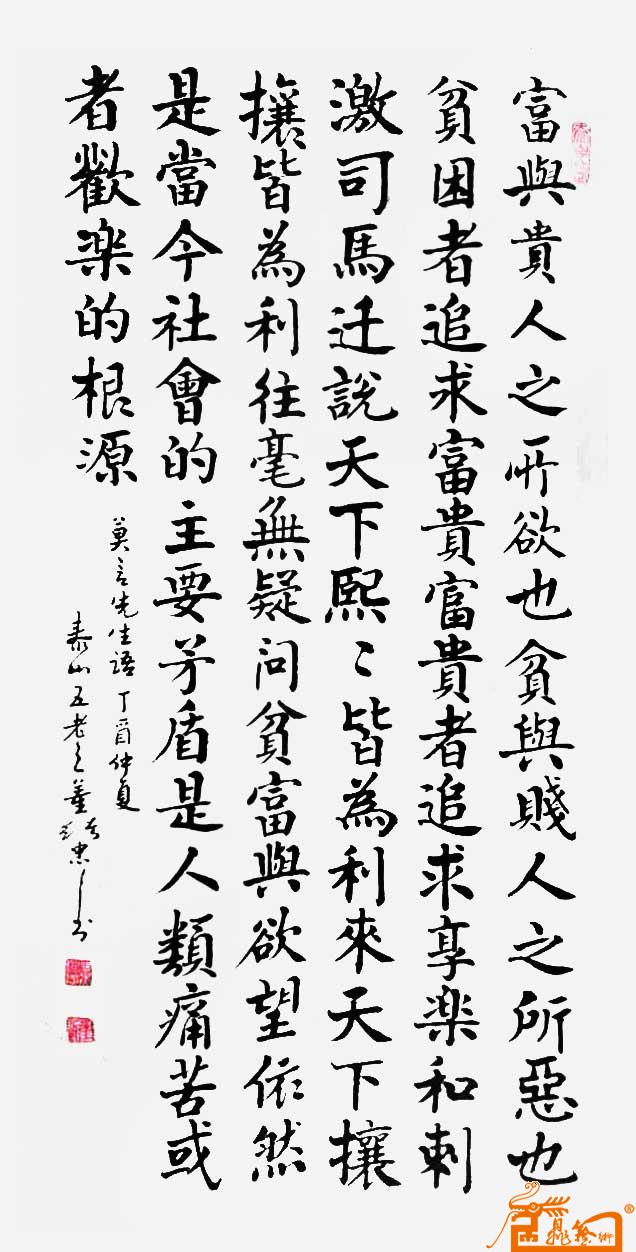 富與貴人之所欲也貧與賤人之所惡也
貧困者追求富貴富貴者追求享楽和刺
激司馬迁説天下熙〻皆為利來天下攘
攘皆為利往毫無疑问貧富與欲望依然
是當今社會的主要矛盾是人類痛苦或
者歡楽的根源
莫言先生語丁酉仲夏
泰山五老之董忠书